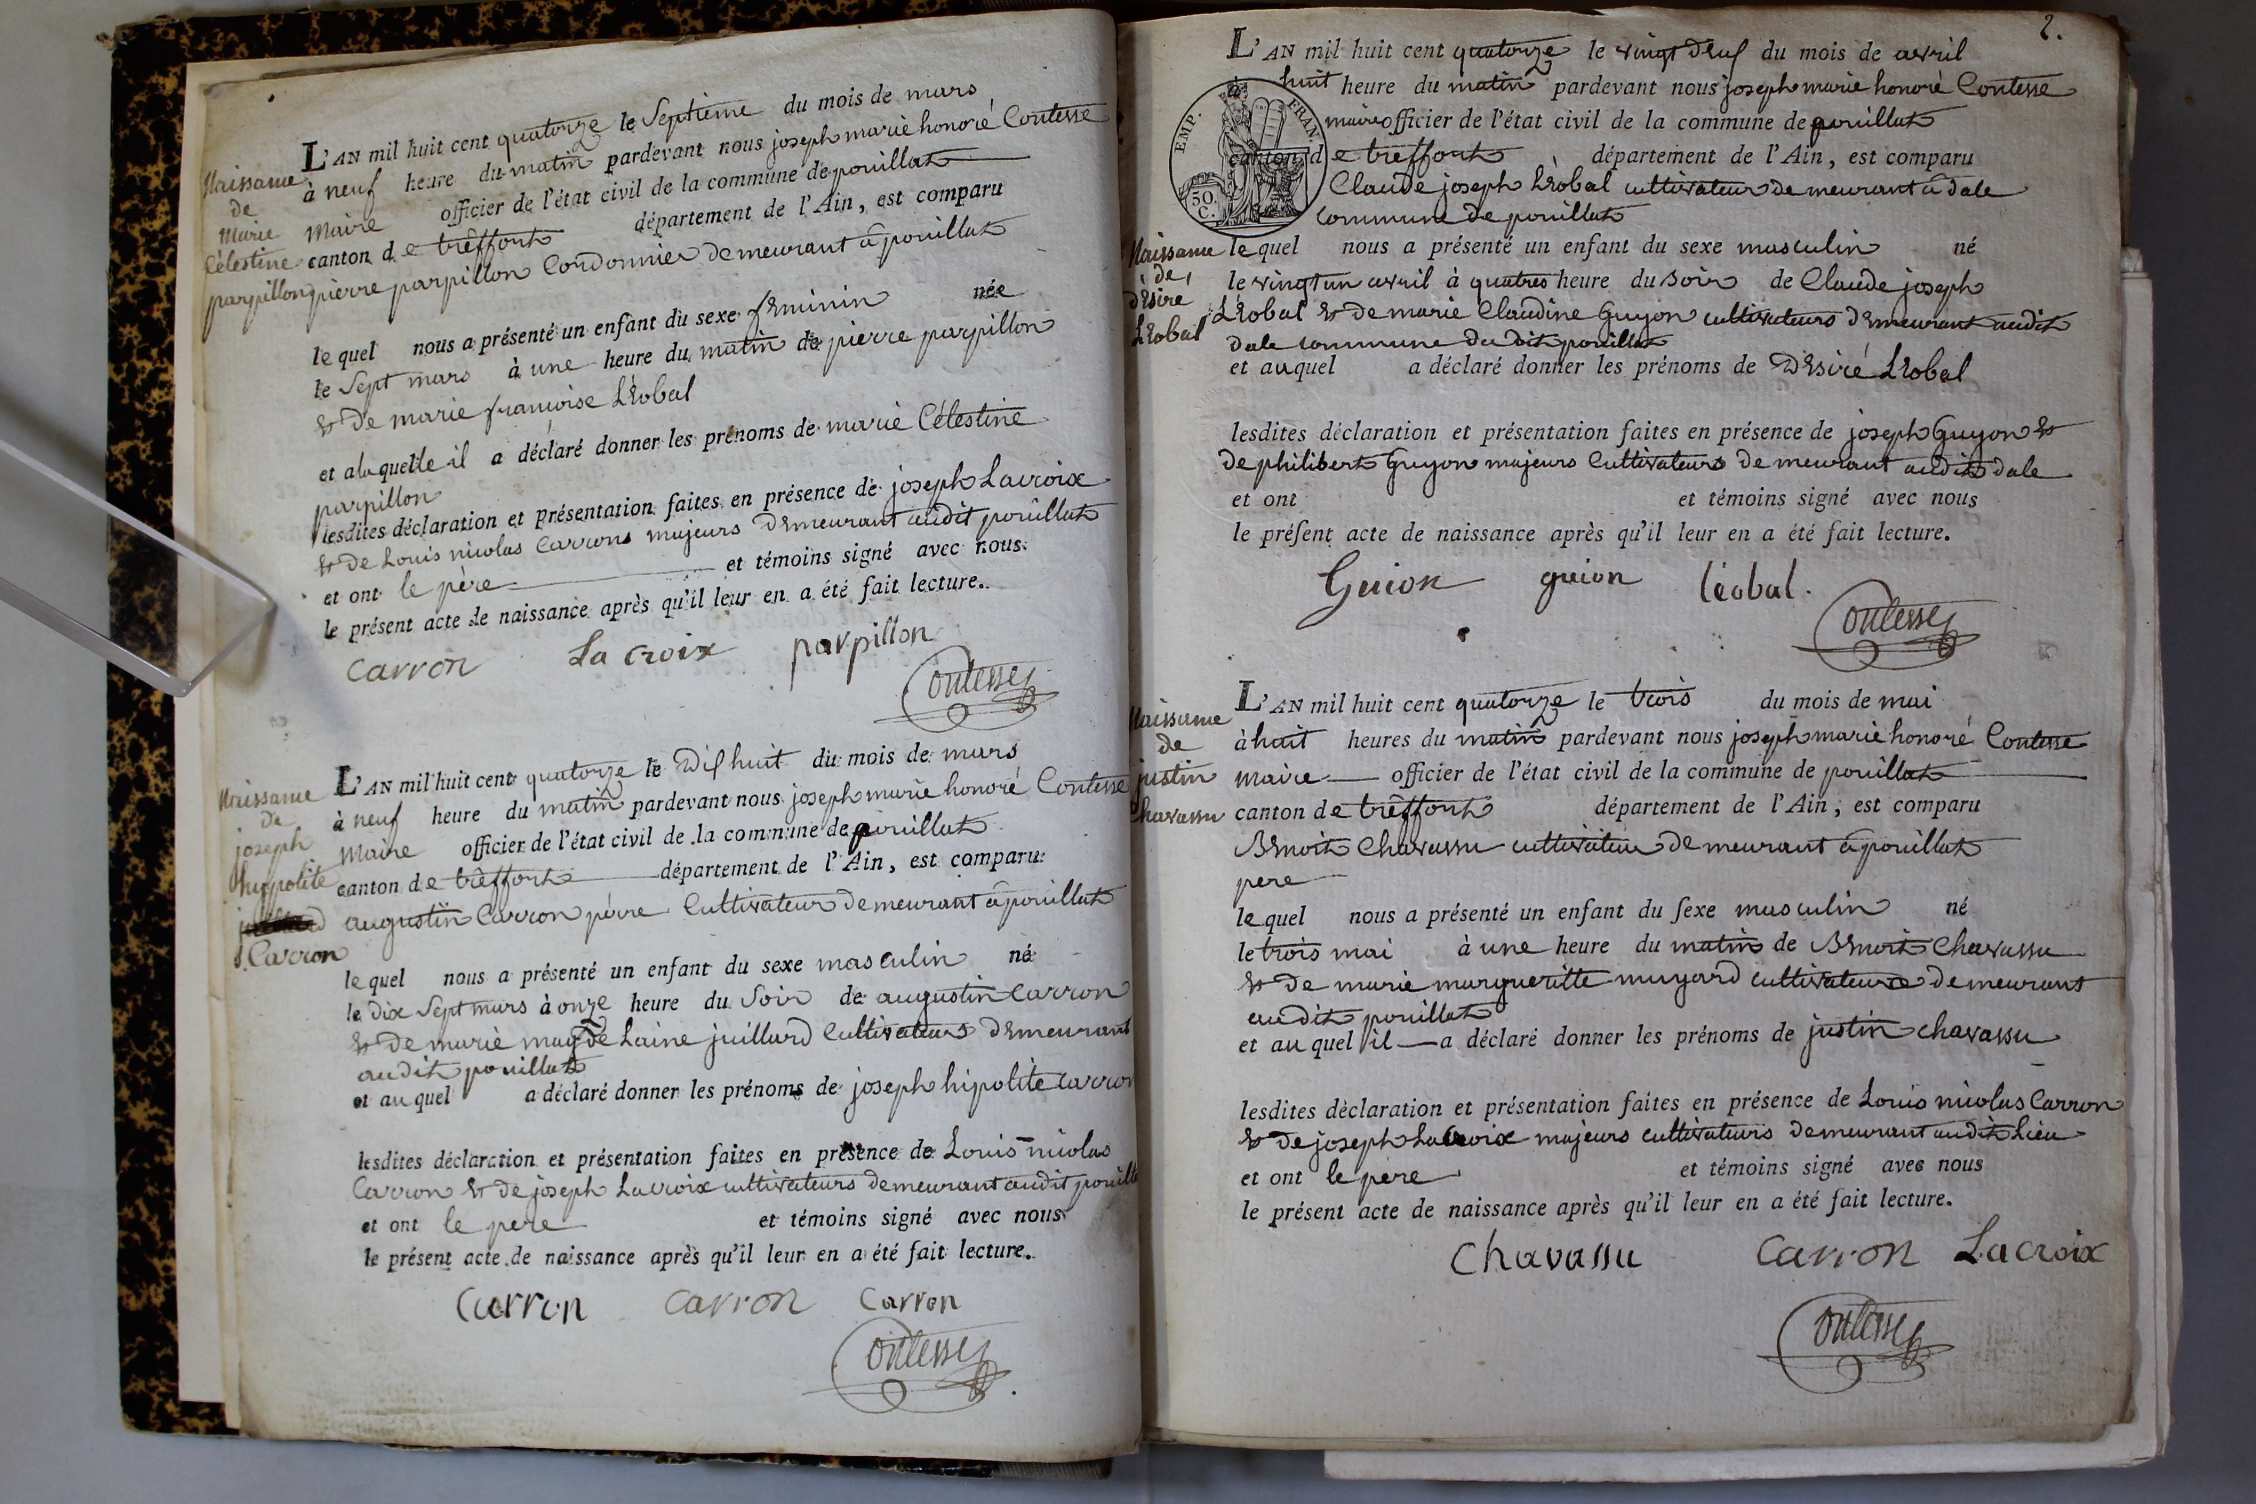 Naissance
de
Marie
Célestine
parpillon
L'AN mil huit cent quatorze le Septième du mois de mars
à neuf heure du matin pardevant nous joseph marie honoré Contesse
Maire officier de l'état civil de la commune de pouillat
canton de trêffort département de l'Ain, est comparu
pierre parpillon Cordonnier demeurant à pouillat
lequel nous a présenté un enfant du sexe feminin née
le sept mars à une heure du matin de pierre parpillon
& de marie francoise Léobal
et alaquelle il a déclaré donner les prénoms de marie Célestine
parpillon
lesdites déclaration et présentation faites en présence de joseph Lacroix
& de Louis nicolas Carrons majeurs demeurant audit pouillat
et ont le père et témoins signé avec nous
le présent acte de naissance après qu'il leur en a été fait lecture.
Carron La croix parpillon
Contesse
Naissance
de
joseph
hippolite
Carron
L'AN mil huit cent quatorze le Dixhuit du mois de mars
à neuf heure du matin pardevant nous joseph marie honoré Contesse
Maire officier de l'état civil de la commune de pouillat
canton de trêffort département de l'Ain, est comparu
augustin Carron père Cultivateur demeurant à pouillat
lequel nous a présenté un enfant du sexe masculin né
le dix sept mars à onze heure du Soir de augustin Carron
& de marie magdelaine juillard Cultivateurs demeurant
audit pouillat
et auquel a déclaré donner les prénoms de joseph hipolite Carron
lesdites déclaration et présentation faites en présence de Louis nicolas
Carron & de joseph Lacroix cultivateurs demeurant audit pouillat
et ont le père et témoins signé avec nous
le présent acte de naissance après qu'il leur en a été fait lecture.
Carron Carron Carron
Contesse
2.
L'AN mil huit cent quatorze le vingt deux du mois de avril
à huit heure du matin pardevant nous joseph marie honoré Contesse
maire officier de l'état civil de la commune de pouillat
canton de trêffort département de l'Ain, est comparu
EMP. FRAN.
50.
C.
Claude joseph Léobal cultivateur demeurant à dale
commune de pouillat
Naissance
de
désiré
Léobal
lequel nous a présenté un enfant du sexe masculin né
le vingt un avril à quatres heure du soir de Claude joseph
Léobal & de marie Claudine Guyon cultivateurs demeurant audit
dale commune du dit pouillat
et auquel a déclaré donner les prénoms de Désiré Léobal
lesdites déclaration et présentation faites en présence de joseph Guyon &
de philibert Guyon majeurs Cultivateurs demeurant audit dale
et ont et témoins signé avec nous
le présent acte de naissance après qu'il leur en a été fait lecture.
Guion guion léobal.
Contesse
Naissance
de
justin
Chavassu
L'AN mil huit cent quatorze le trois du mois de mai
à huit heures du matin pardevant nous joseph marie honoré Contesse
Maire officier de l'état civil de la commune de pouillat
canton de trêffort département de l'Ain, est comparu
Benoit Chavassu cultivateur demeurant à pouillat
pere
lequel nous a présenté un enfant du sexe masculin né
le trois mai à une heure du matin de Benoit Chavassu
& de marie margueritte muyard cultivateurs demeurant
audit pouillat
et auquel il a déclaré donner les prénoms de justin chavassu
lesdites déclaration et présentation faites en présence de Louis nicolas Carron
& de joseph Lacroix majeurs cultivateurs demeurant audit Lieu
et ont le père et témoins signé avec nous
le présent acte de naissance après qu'il leur en a été fait lecture.
Chavassu Carron Lacroix
Contesse